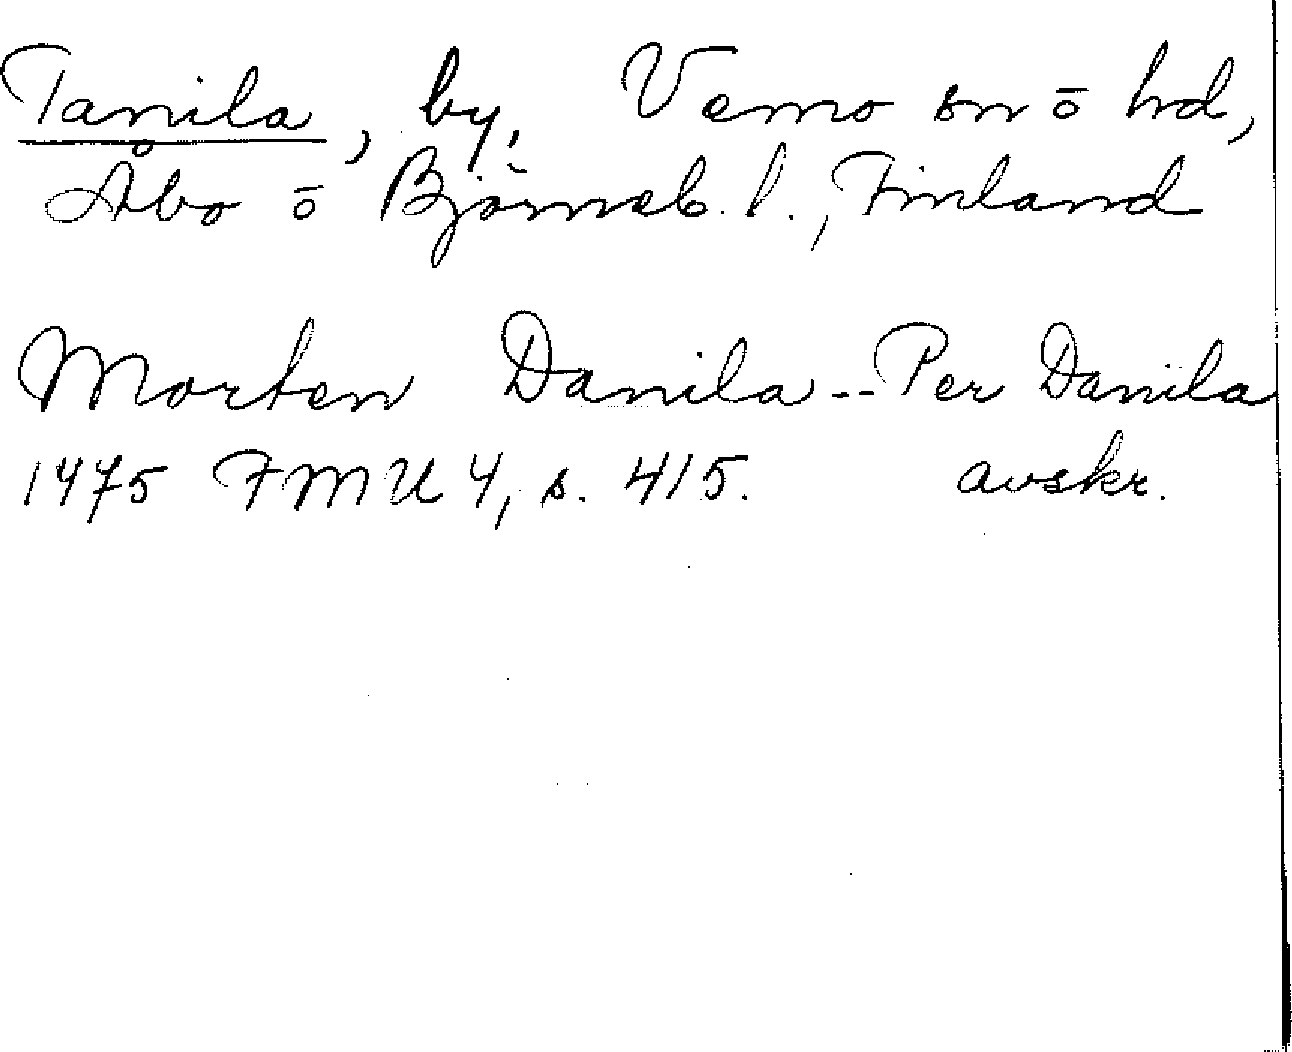 Tanila, by, Vemo sn ō hd,
Åbo ō Björneb. l., Finland
Morten Danila -- Per Danila
1475 FMU 4, s. 415. avskr.